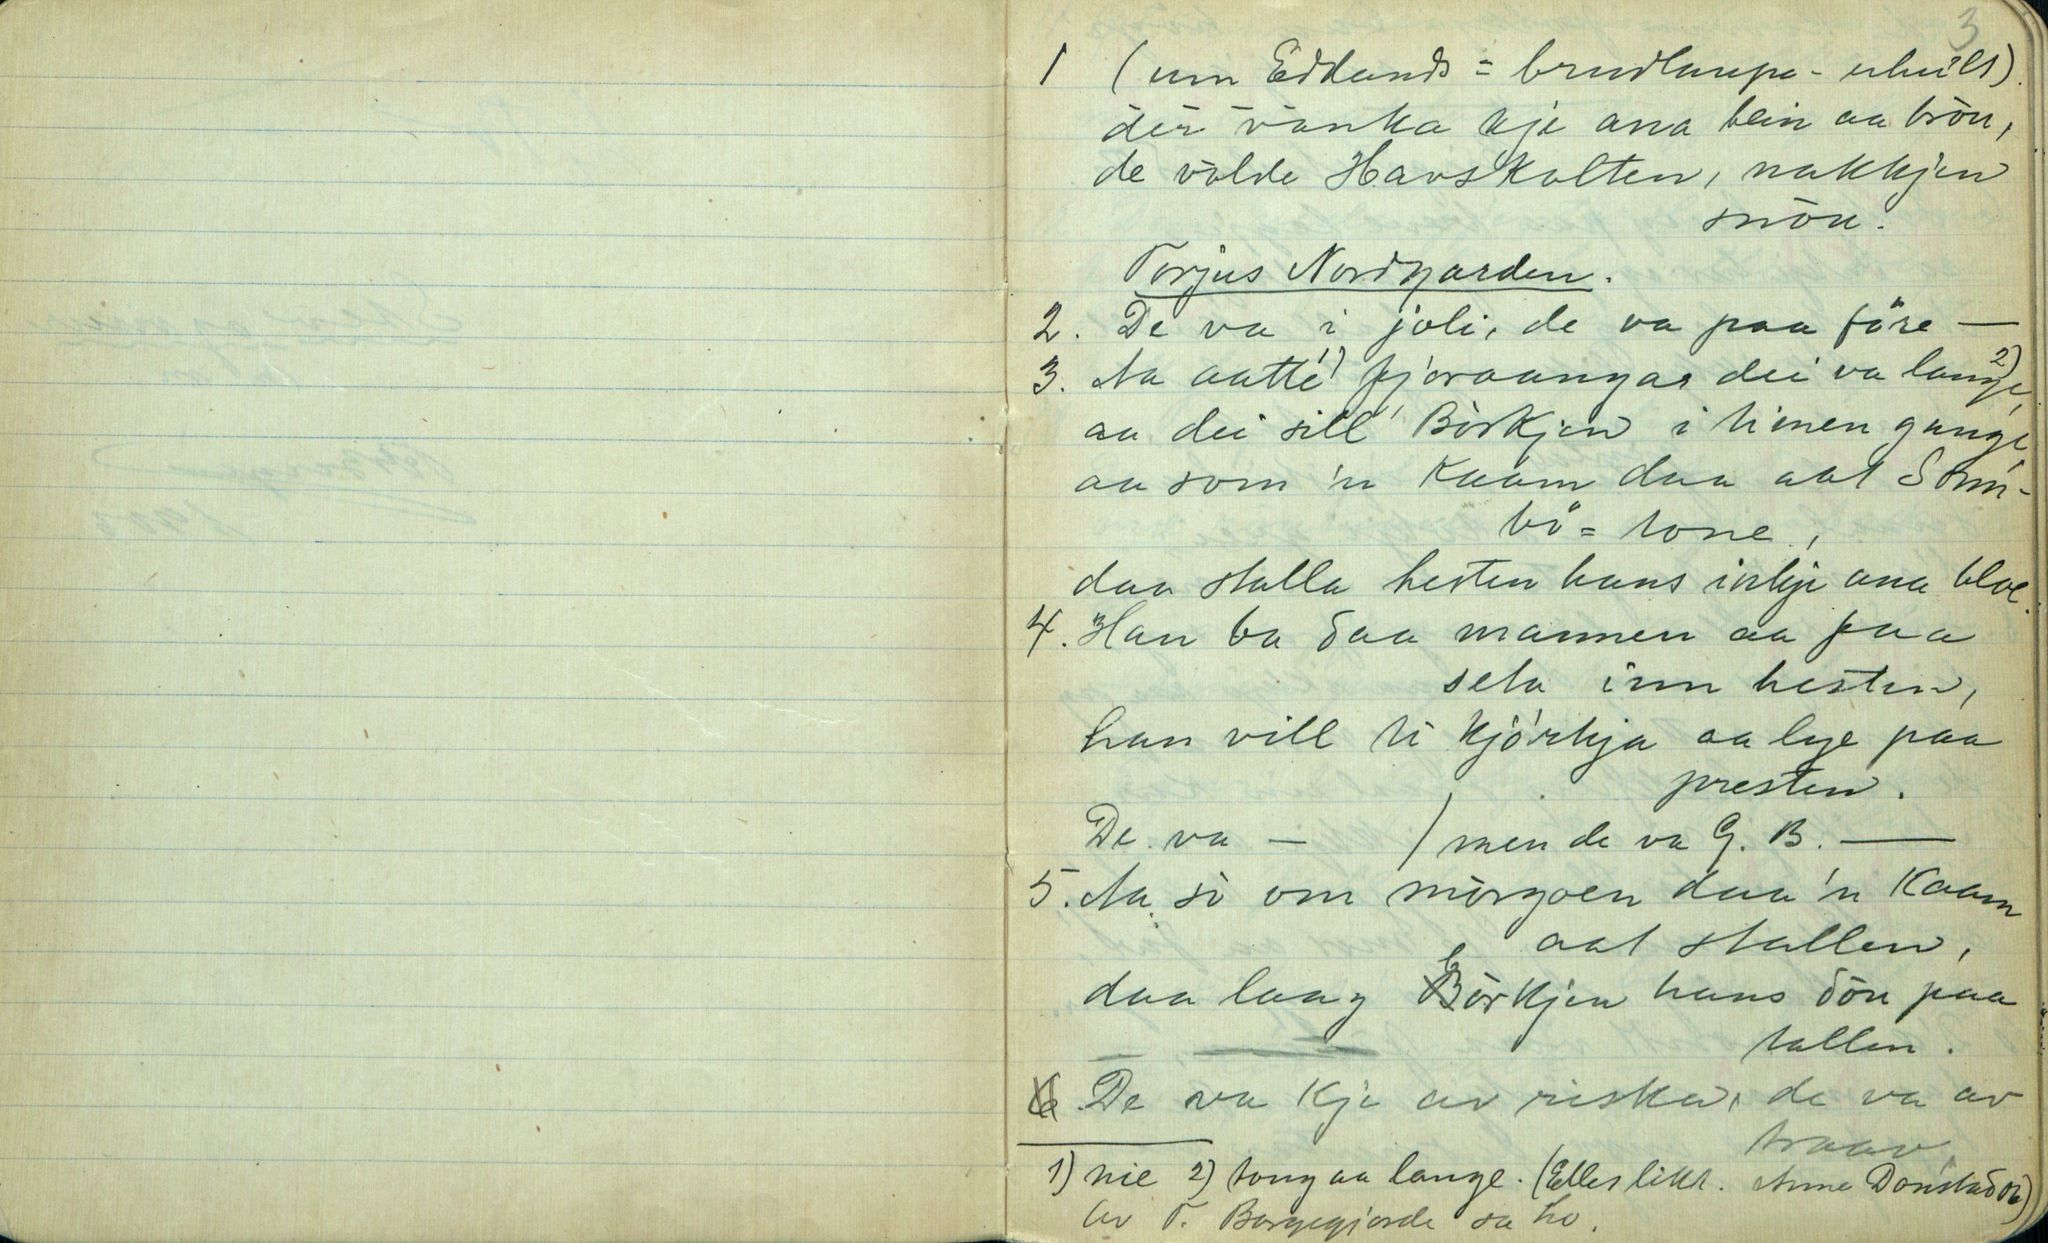 3
1 (um Eddands = brudlaupe - uhuilt).
der vanka kje ana bein aa bröu,
de völde Havskolten, nakkjen
snöu.
Torjus Nordgarden.
2. De va i joli, de va paa före —
3. Aa aatte 1) fjoraangar dei va lange 2),
aa dei sill Börkjen i timen gange,
aa som 'n kaam daa aat Sönn-
bö = tone,
daa stalla hesten hans inkje ana bloe.
4. Han ba daa mannen aa paa
seta inn hesten,
han vill ti kjörkja aa lye paa
presten.
De va — / men de va G. B. —
5. Aa so om morgoen daa 'n kaam
aat stallen,
daa laag Börkjen hans döu paa
tallen.
6. De va kje av riska, de va av
traav
1) nie 2) tong aa lange. (Elles likt. Anne Dönstadou)
Av T. Borgegjorde sa ho.